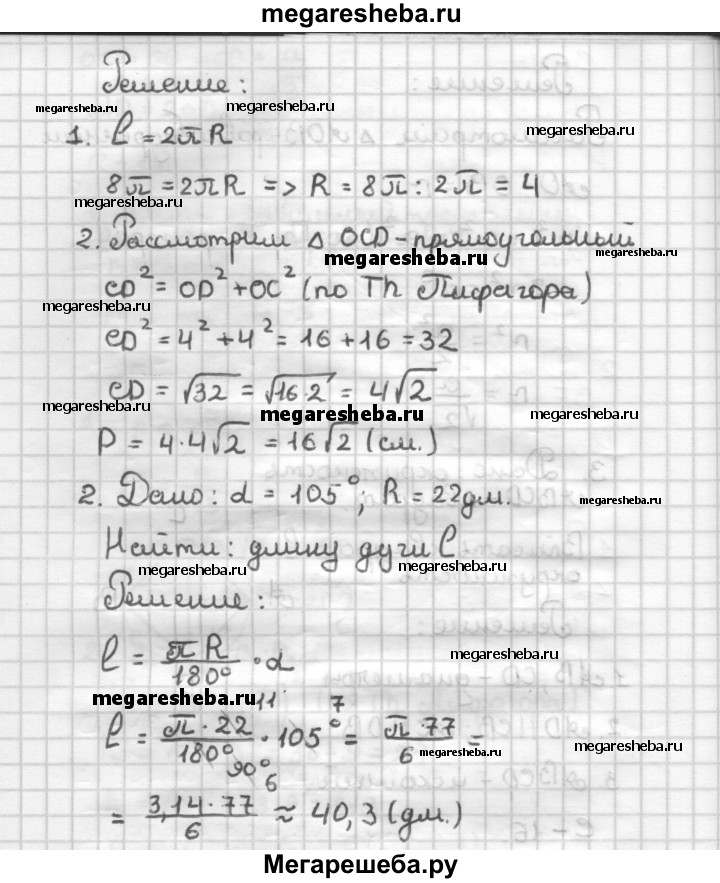 megaresheba.ru
Решение:
megaresheba.ru
megaresheba.ru
megaresheba.ru
1. ℓ = 2πR
8π = 2πR => R = 8π : 2π = 4
megaresheba.ru
2. Рассмотрим Δ OCD - прямоугольный
megaresheba.ru
megaresheba.ru
CD² = OD² + OC² (по Th Пифагора)
megaresheba.ru
CD² = 4² + 4² = 16 + 16 = 32
CD = √32 = √16·2 = 4√2
megaresheba.ru
megaresheba.ru
megaresheba.ru
P = 4·4√2 = 16√2 (см.)
2. Дано: α = 105°; R = 22дм.
megaresheba.ru
Найти: длину дуги ℓ
megaresheba.ru
megaresheba.ru
Решение:
ℓ = πR/180° · α
megaresheba.ru
megaresheba.ru
11 7
ℓ = π·22/180° · 105° = π·77/6 =
90°
6
megaresheba.ru
megaresheba.ru
= 3,14·77/6 ≈ 40,3 (дм.)
Мегарешеба.ру